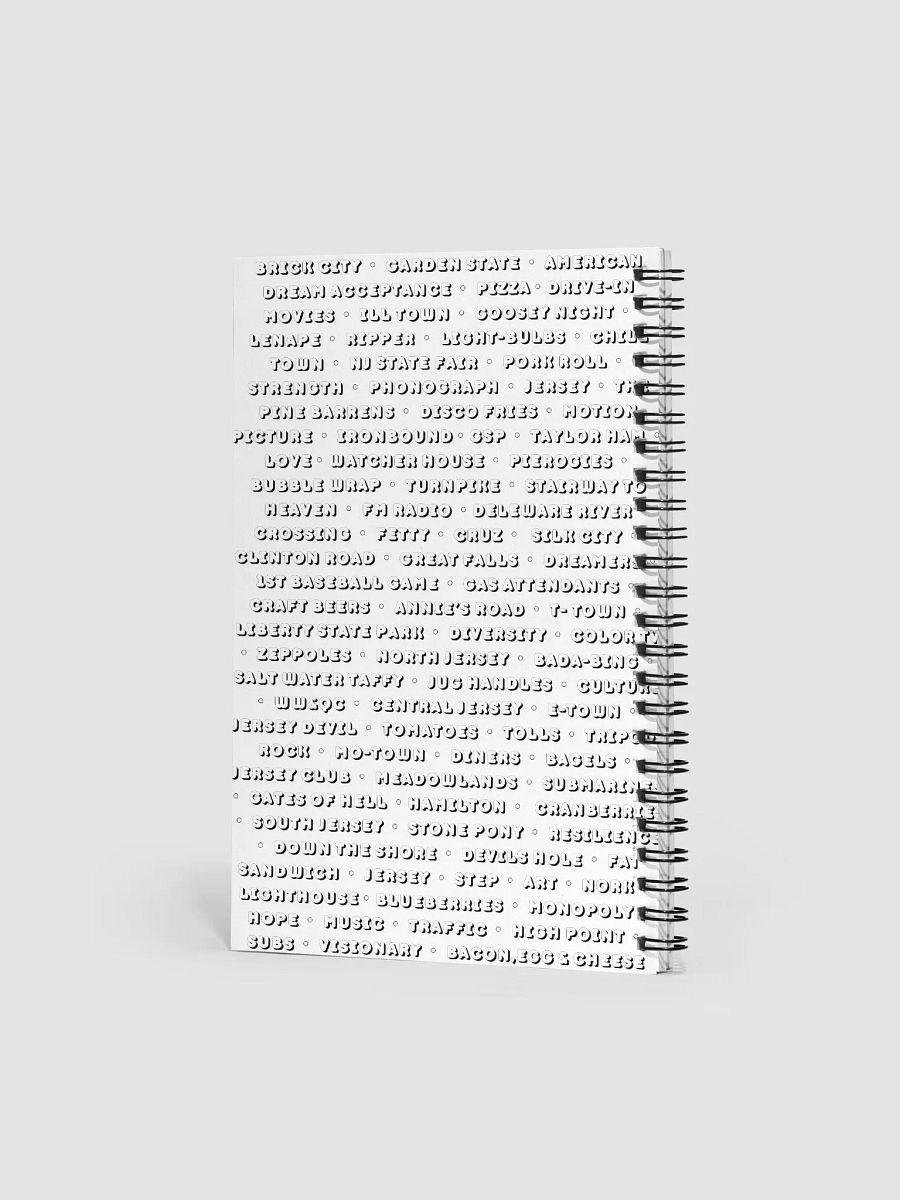 BRICK CITY ◦ GARDEN STATE ◦ AMERICAN
DREAM ACCEPTANCE ◦ PIZZA ◦ DRIVE-IN
MOVIES ◦ ILLTOWN ◦ GOOSEY NIGHT ◦
LENAPE ◦ RIPPER ◦ LIGHT-BULBS ◦ CHILL
TOWN ◦ NJ STATE FAIR ◦ PORK ROLL ◦
STRENGTH ◦ PHONOGRAPH ◦ JERSEY ◦ THE
PINE BARRENS ◦ DISCO FRIES ◦ MOTION
PICTURE ◦ IRONBOUND ◦ GSP ◦ TAYLOR HAM ◦
LOVE ◦ WATCHER HOUSE ◦ PIEROGIES ◦
BUBBLE WRAP ◦ TURNPIKE ◦ STAIRWAY TO
HEAVEN ◦ FM RADIO ◦ DELEWARE RIVER
CROSSING ◦ FETTY ◦ CRUZ ◦ SILK CITY ◦
CLINTON ROAD ◦ GREAT FALLS ◦ DREAMERS
1ST BASEBALL GAME ◦ GAS ATTENDANTS ◦
CRAFT BEERS ◦ ANNIE'S ROAD ◦ T-TOWN ◦
LIBERTY STATE PARK ◦ DIVERSITY ◦ COLOR TV
◦ ZEPPOLES ◦ NORTH JERSEY ◦ BADA-BING ◦
SALT WATER TAFFY ◦ JUG HANDLES ◦ CULTURE
◦ CENTRAL JERSEY ◦ E-TOWN ◦
JERSEY DEVIL ◦ TOMATOES ◦ TOLLS ◦
ROCK ◦ MO-TOWN ◦ DINERS ◦ BAGELS ◦
JERSEY CLUB ◦ MEADOWLANDS ◦ SUBMARINE
◦ GATES OF HELL ◦ HAMILTON ◦ CRANBERRIE
◦ SOUTH JERSEY ◦ STONE PONY ◦ RESILIENCE
◦ DOWN THE SHORE ◦ DEVILS HOLE ◦ FAT
SANDWICH ◦ JERSEY ◦ STEP ◦ ART ◦ NORK
LIGHTHOUSE ◦ BLUEBERRIES ◦ MONOPOLY
HOPE ◦ MUSIC ◦ TRAFFIC ◦ HIGH POINT ◦
SUBS ◦ VISIONARY ◦ BACON,EGG & CHEESE